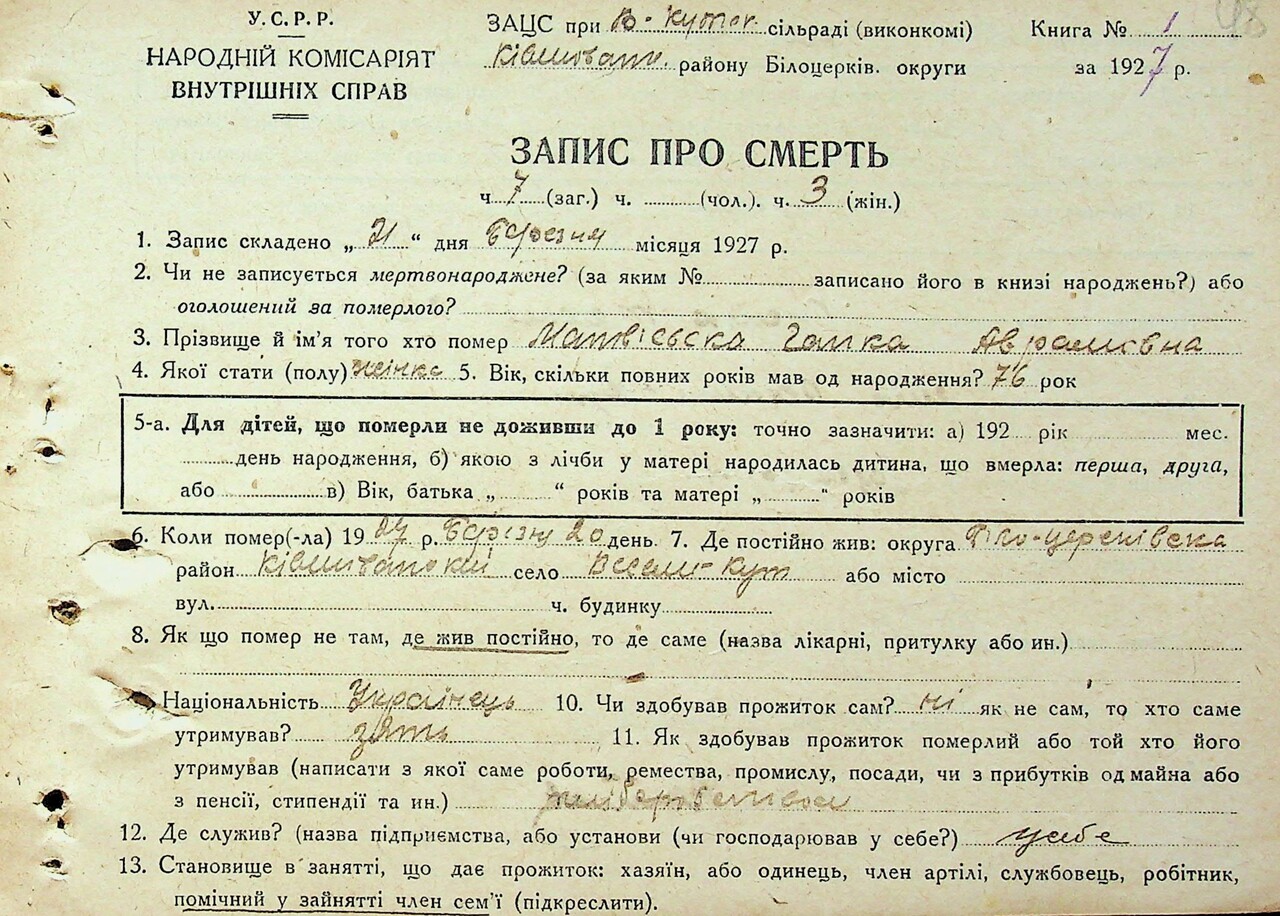 У.С.Р.Р.
НАРОДНІЙ КОМІСАРІЯТ
ВНУТРІШНІХ СПРАВ
ЗАЦС при В-Кутск. сільраді (виконкомі)
району Білоцерків. округи
Книга № 1
за 1927 р.
48
ЗАПИС ПРО СМЕРТЬ
ч. 7 (заг.) ч. (чол.). ч. 3 (жін.)
1. Запис складено „ 21 “ дня Березня місяця 1927 р.
2. Чи не записується мертвонароджене? (за яким № записано його в книзі народжень?) або
оголошений за померлого?
3. Прізвище й ім'я того хто помер Матвієвска Гапка Аврамовна
4. Якої стати (полу) жінка 5. Вік, скільки повних років мав од народження? 76 рок
5-а. Для дітей, що померли не доживши до 1 року: точно зазначити: а) 192 рік мес.
день народження, б) якою з лічби у матері народилась дитина, що вмерла: перша, друга,
або в) Вік, батька „ “ років та матері „ “ років
6. Коли помер(-ла) 1927 р. Березня 20 день. 7. Де постійно жив: округа
район село або місто
вул. ч. будинку
8. Як що помер не там, де жив постійно, то де саме (назва лікарні, притулку або ин.)
Національність Українець 10. Чи здобував прожиток сам? ні як не сам, то хто саме
утримував? зять 11. Як здобував прожиток померлий або той хто його
утримував (написати з якої саме роботи, ремества, промислу, посади, чи з прибутків од майна або
з пенсії, стипендії та ин.) хліборобством
12. Де служив? (назва підприємства, або установи (чи господарював у себе?) усебе
13. Становище в занятті, що дає прожиток: хазяїн, або одинець, член артілі, службовець, робітник,
помічний у зайнятті член сем'ї (підкреслити).